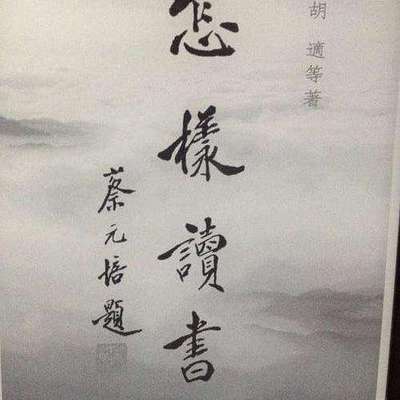 胡適等著
怎樣讀書
蔡元培題